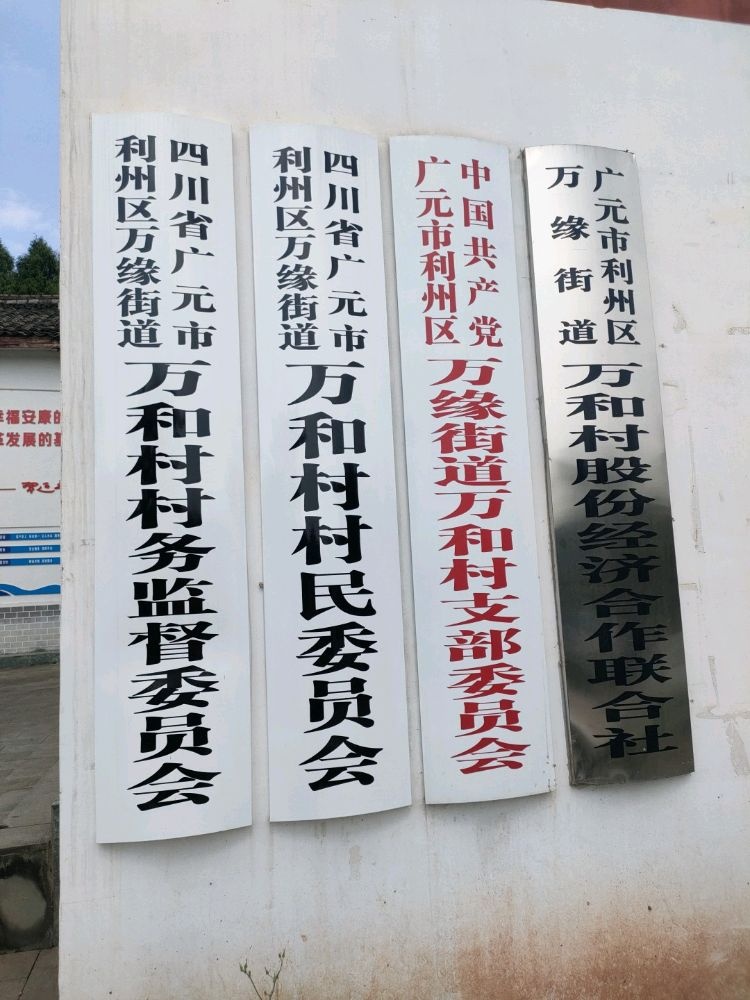 四川省广元市
利州区万缘街道
万和村村务监督委员会
四川省广元市
利州区万缘街道
万和村村民委员会
中国共产党
广元市利州区
万缘街道万和村支部委员会
广元市利州区
万缘街道
万和村股份经济合作联合社
幸福安康的
发展的基